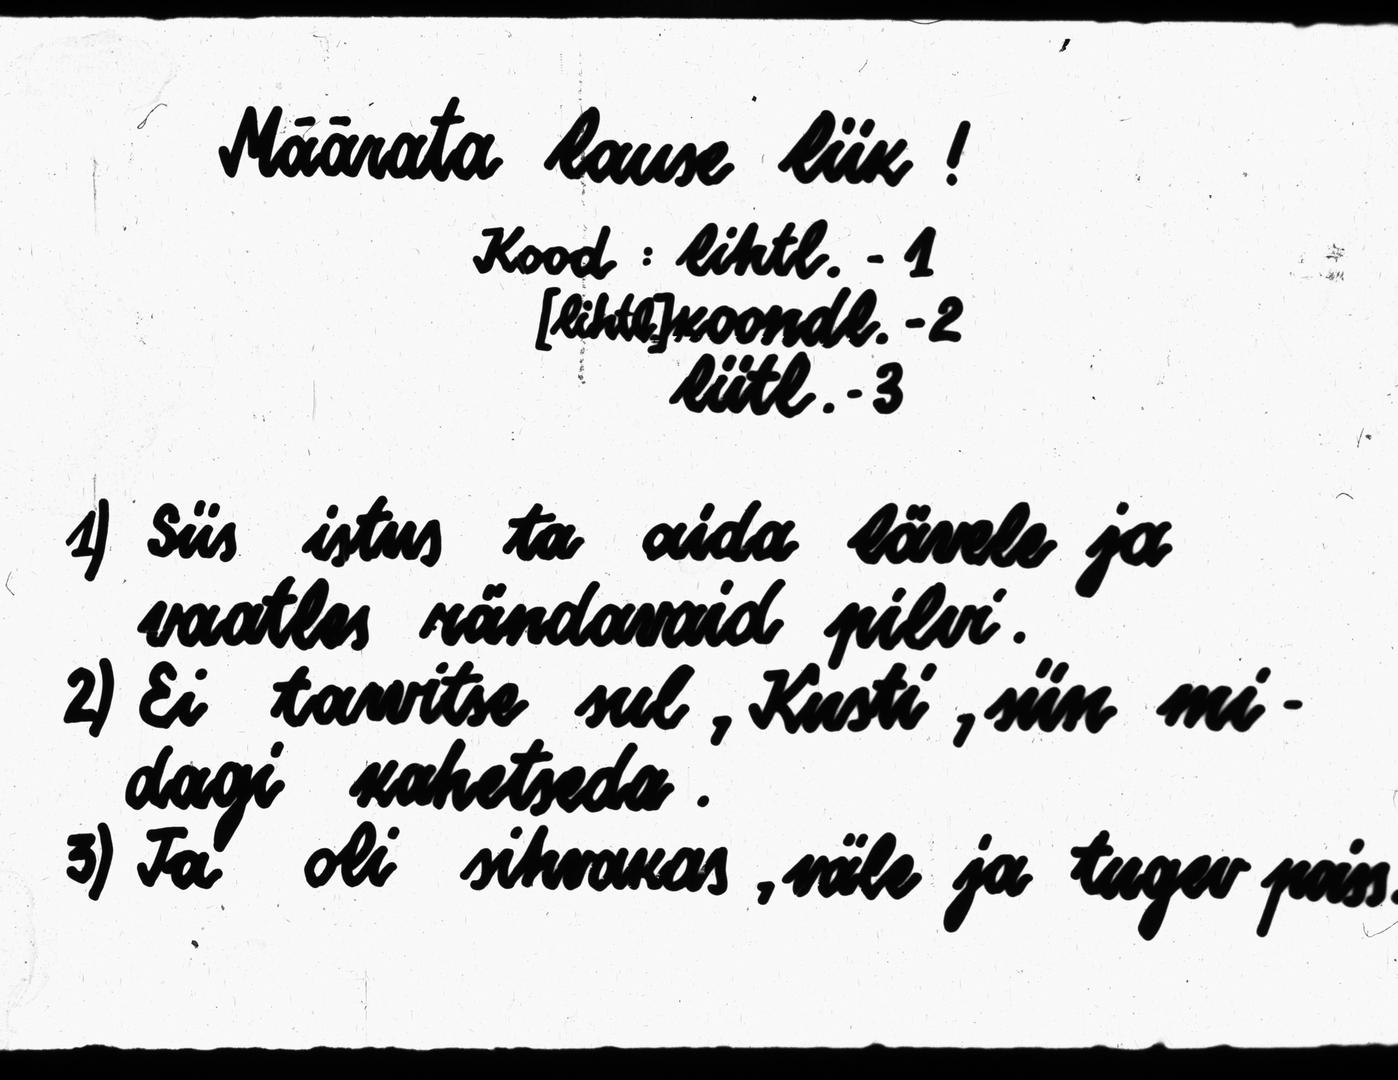 Määrata lause liik !
Kood : lihtl. - 1
[lihtl] koondl. - 2
liitl. - 3
1) Siis istus ta aida lävele ja
vaatles rändavaid pilvi.
2) Ei tarvitse sul, Kusti, siin mi-
dagi kahetseda.
3) Ta oli sihvakas, väle ja tugev poiss.